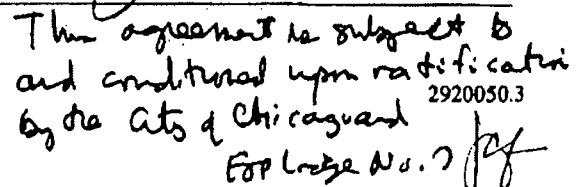 This agreement is subject to
and conditioned upon ratification
2920050.3
by the City of Chicago and
FOP Lodge No. 7